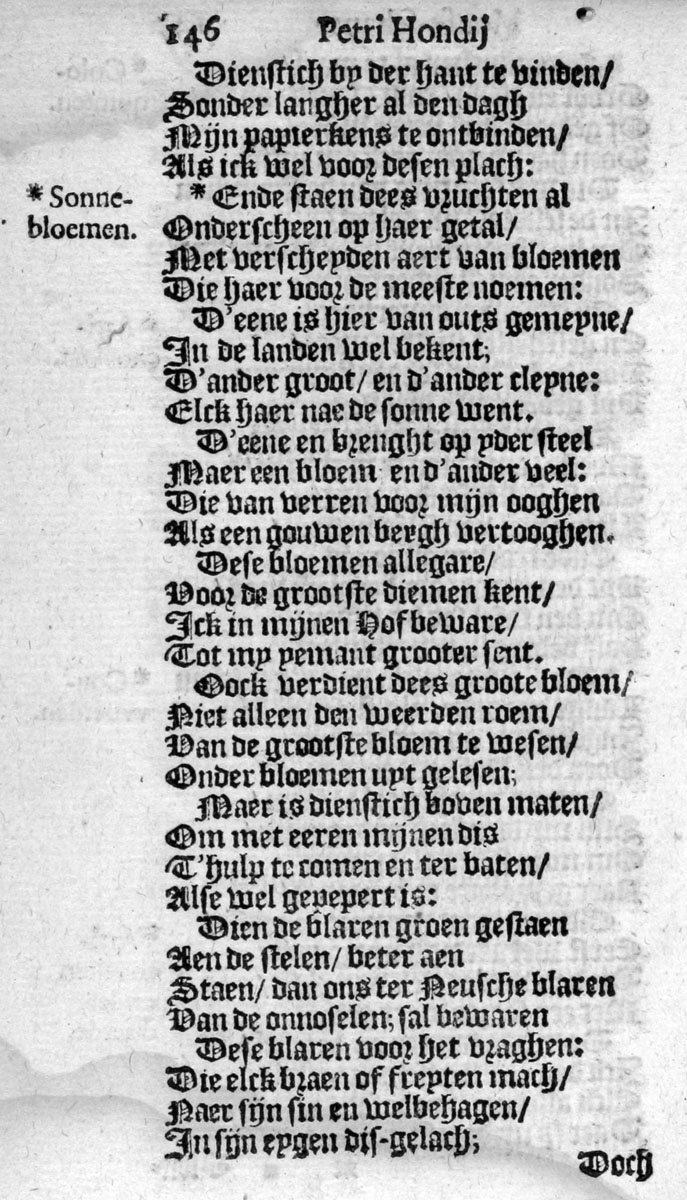 146 Petri Hondij
Dienstich by der hant te vinden/
Sonder langher al den dagh
Mijn papierkens te ontbinden/
Als ick wel voor desen plach:
* Sonne-
bloemen.
* Ende staen dees vruchten al
Onderscheen op haer getal/
Met verscheyden aert van bloemen
Die haer voor de meeste noemen:
D'eene is hier van outs gemeyne/
In de landen wel bekent;
D'ander groot/ en d'ander cleyne:
Elck haer nae de sonne went.
D'eene en brenght op yder steel
Maer een bloem en d'ander veel:
Die van verren voor mijn ooghen
Als een gouwen bergh vertooghen.
Dese bloemen allegare/
Voor de grootste diemen kent/
Ick in mijnen Hof beware/
Tot my yemant grooter sent.
Oock verdient dees groote bloem/
Niet alleen den weerden roem/
Van de grootste bloem te wesen/
Onder bloemen uyt gelesen;
Maer is dienstich boven maten/
Om met eeren mijnen dis
T'hulp te comen en ter baten/
Alse wel gepepert is:
Dien de blaren groen gestaen
Aen de stelen/ beter aen
Staen/ dan ons ter Neusche blaren
Van de onnoselen; sal bewaren
Dese blaren voor het vraghen:
Die elck braen of freyten mach/
Naer sijn sin en welbehagen/
In sijn eygen dis-gelach;
Doch